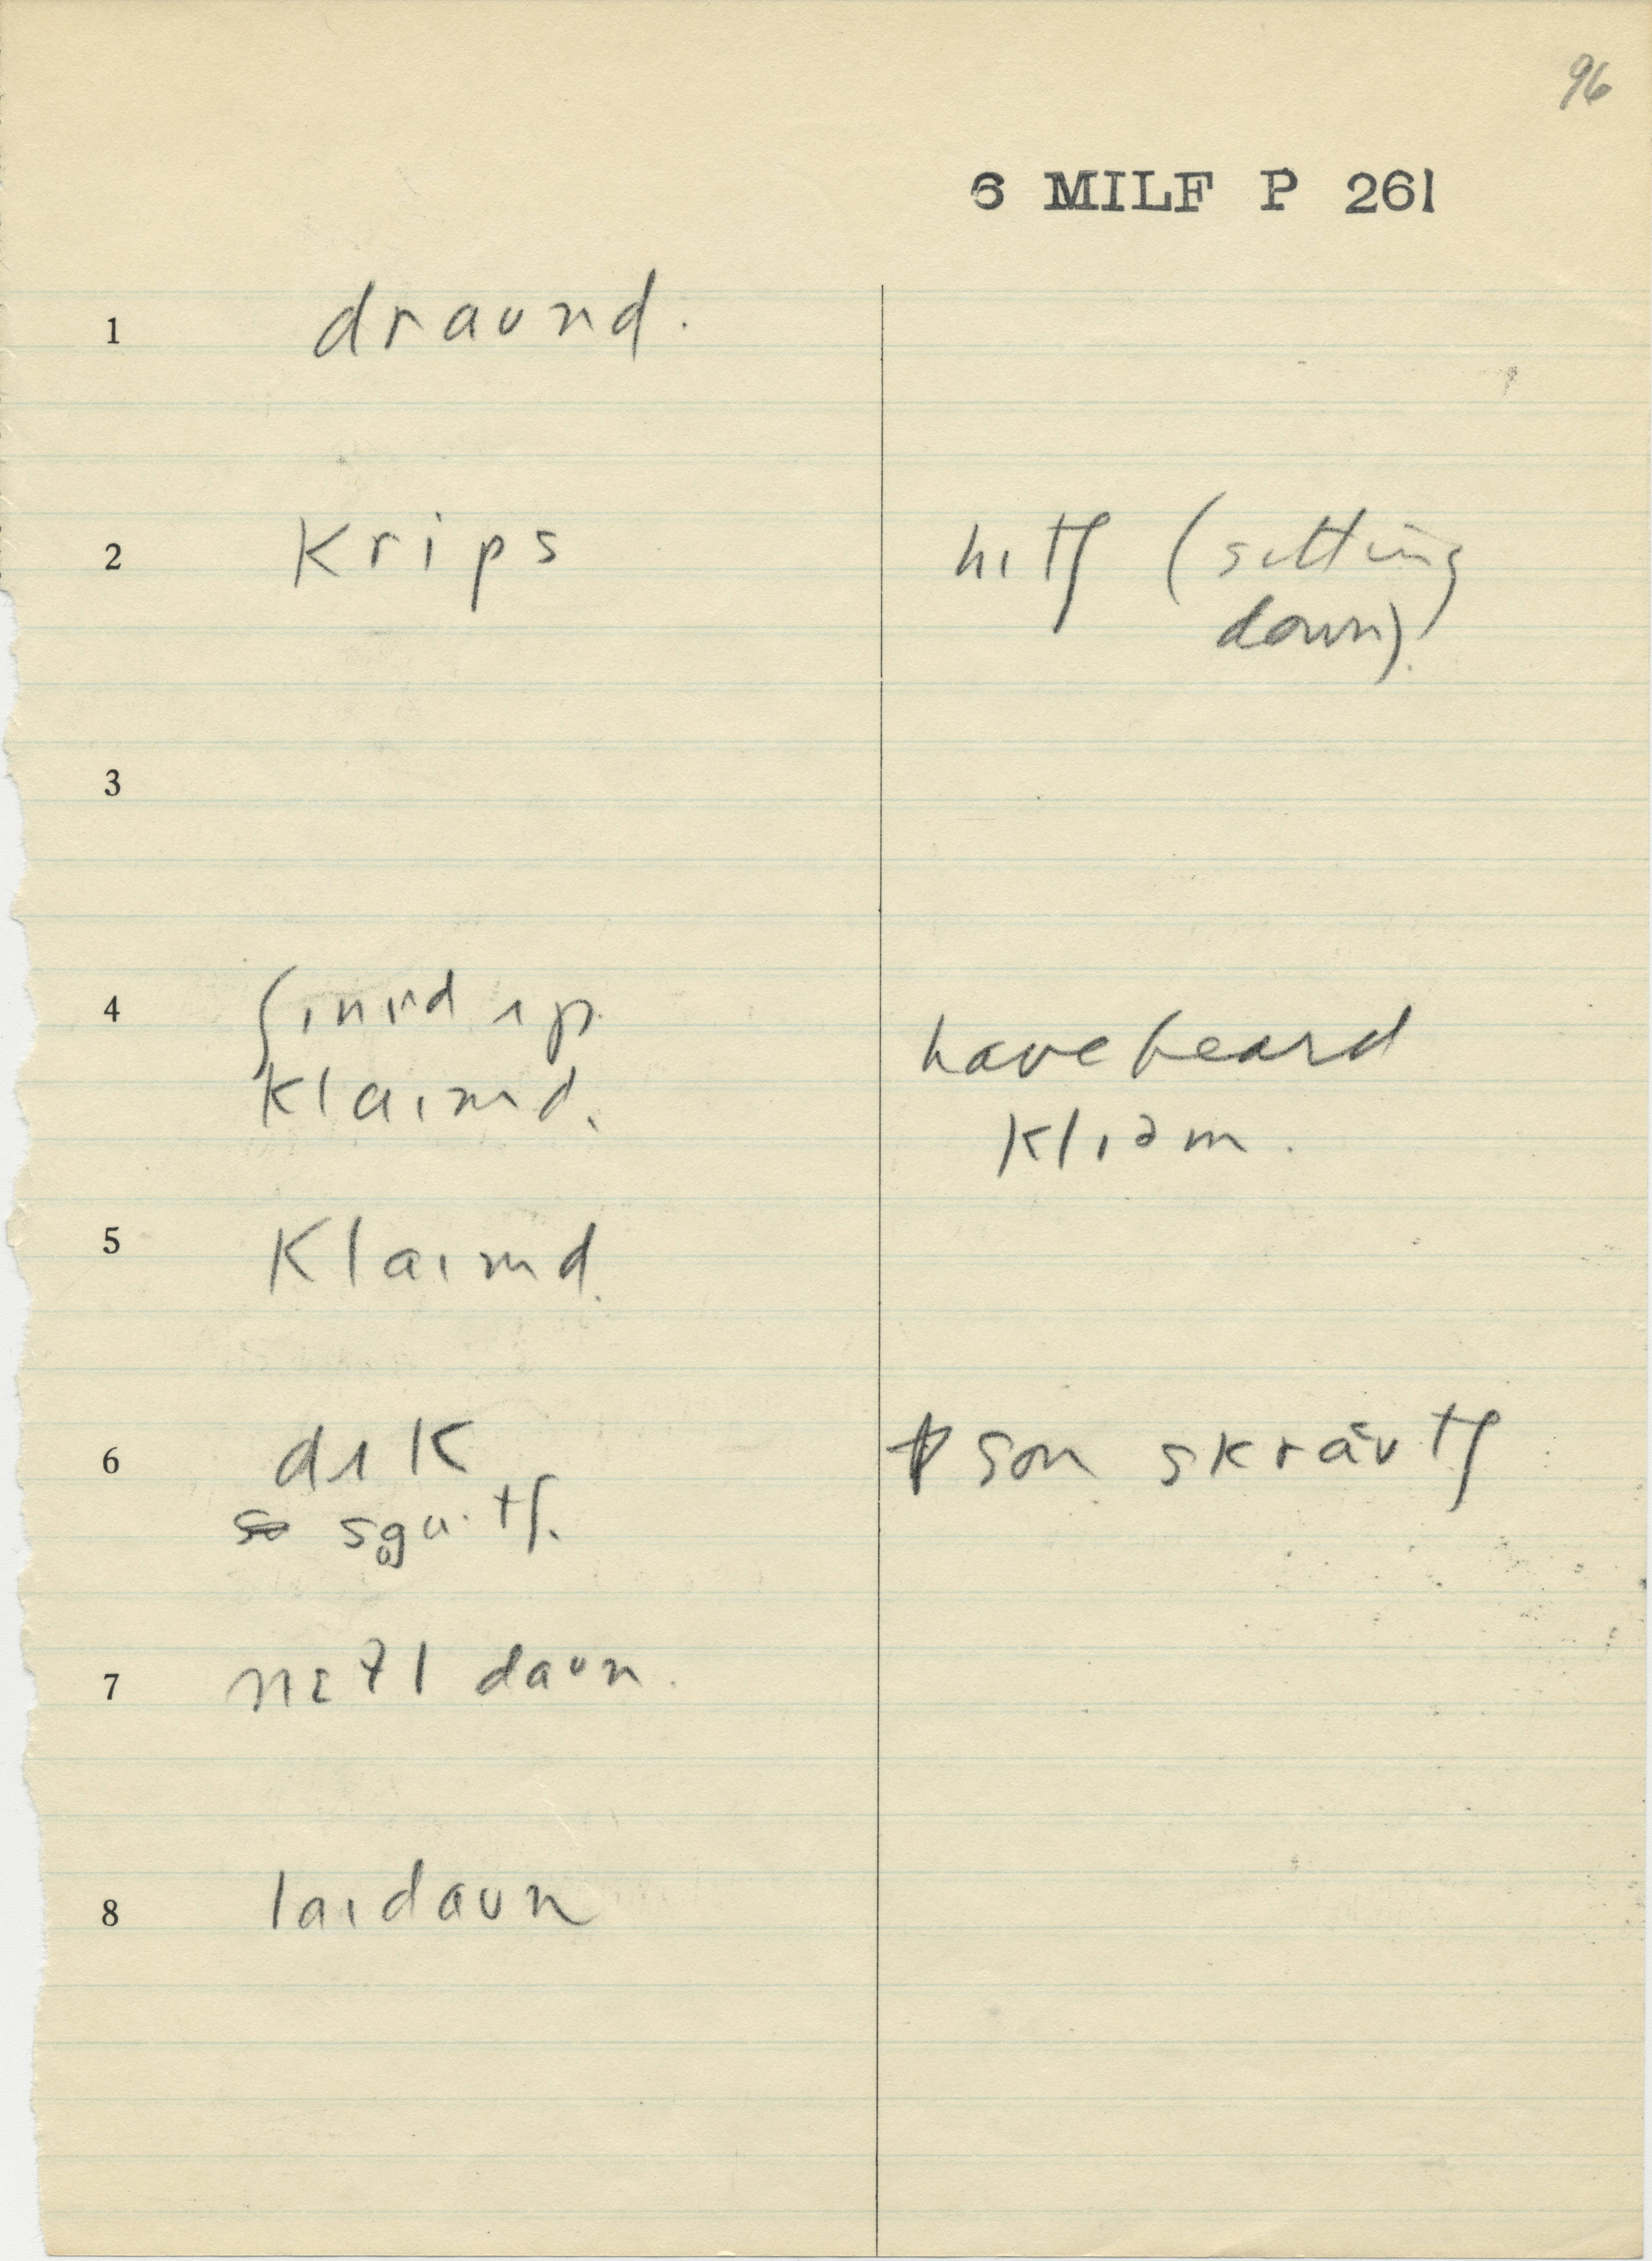 96
6 MILF P 261
1 draʊnd.
2 krips
hɪtʃ (sitting
down).
3
4 ʃɪnɪd ʌp.
klaɪmd.
have heard
klɪəm.
5 klaɪmd.
6 dʌk
sgɑ·tʃ.
son skraʊtʃ
7 daʊn.
8 laɪdaʊn